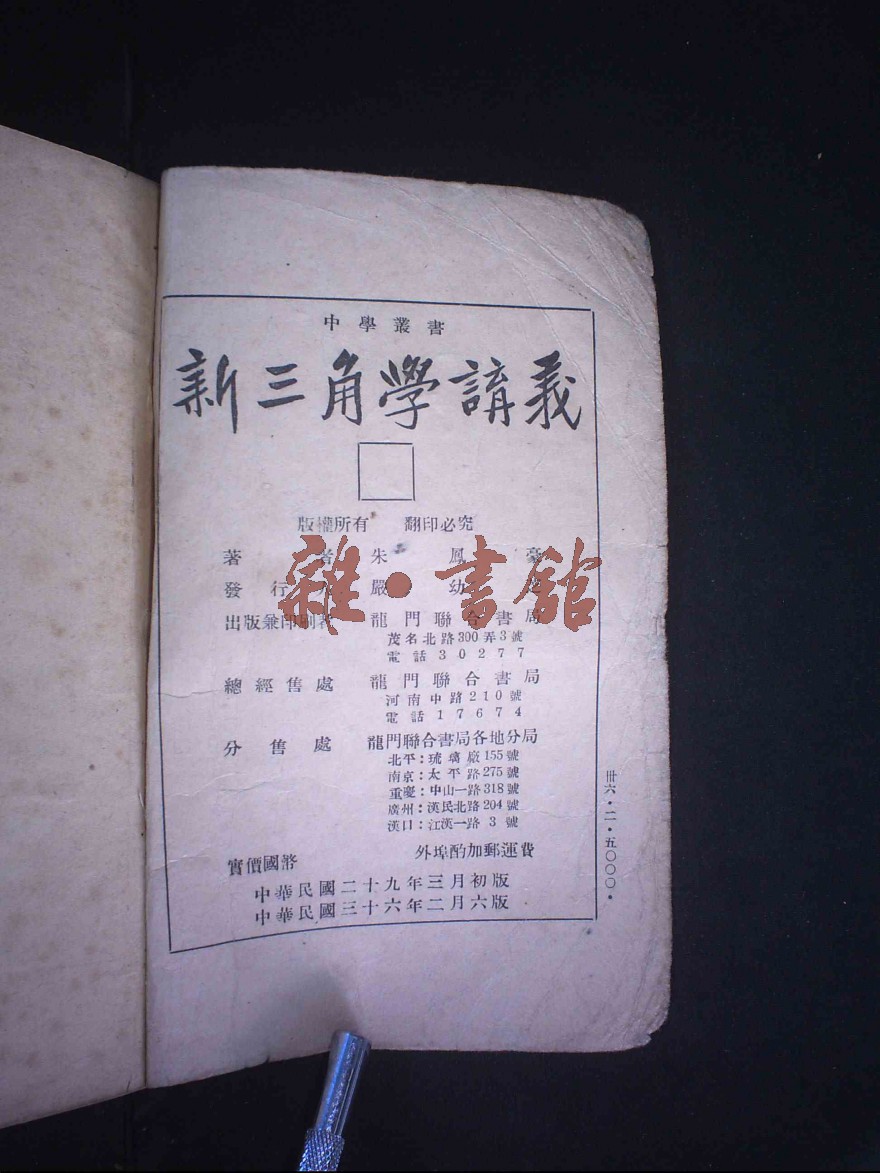 中學叢書
新三角學講義
版權所有 翻印必究
著者 朱鳳豪
發行 嚴幼
出版兼印刷者 龍門聯合書局
茂名北路300弄3號
電話30277
總經售處 龍門聯合書局
河南中路210號
電話17674
分售處 龍門聯合書局各地分局
北平：琉璃廠155號
南京：太平路275號
重慶：中山一路318號
廣州：漢民北路204號
漢口：江漢一路3號
實價國幣
外埠酌加郵運費
中華民國二十九年三月初版
中華民國三十六年二月六版
卅六·二·五〇〇〇·
雜·書館